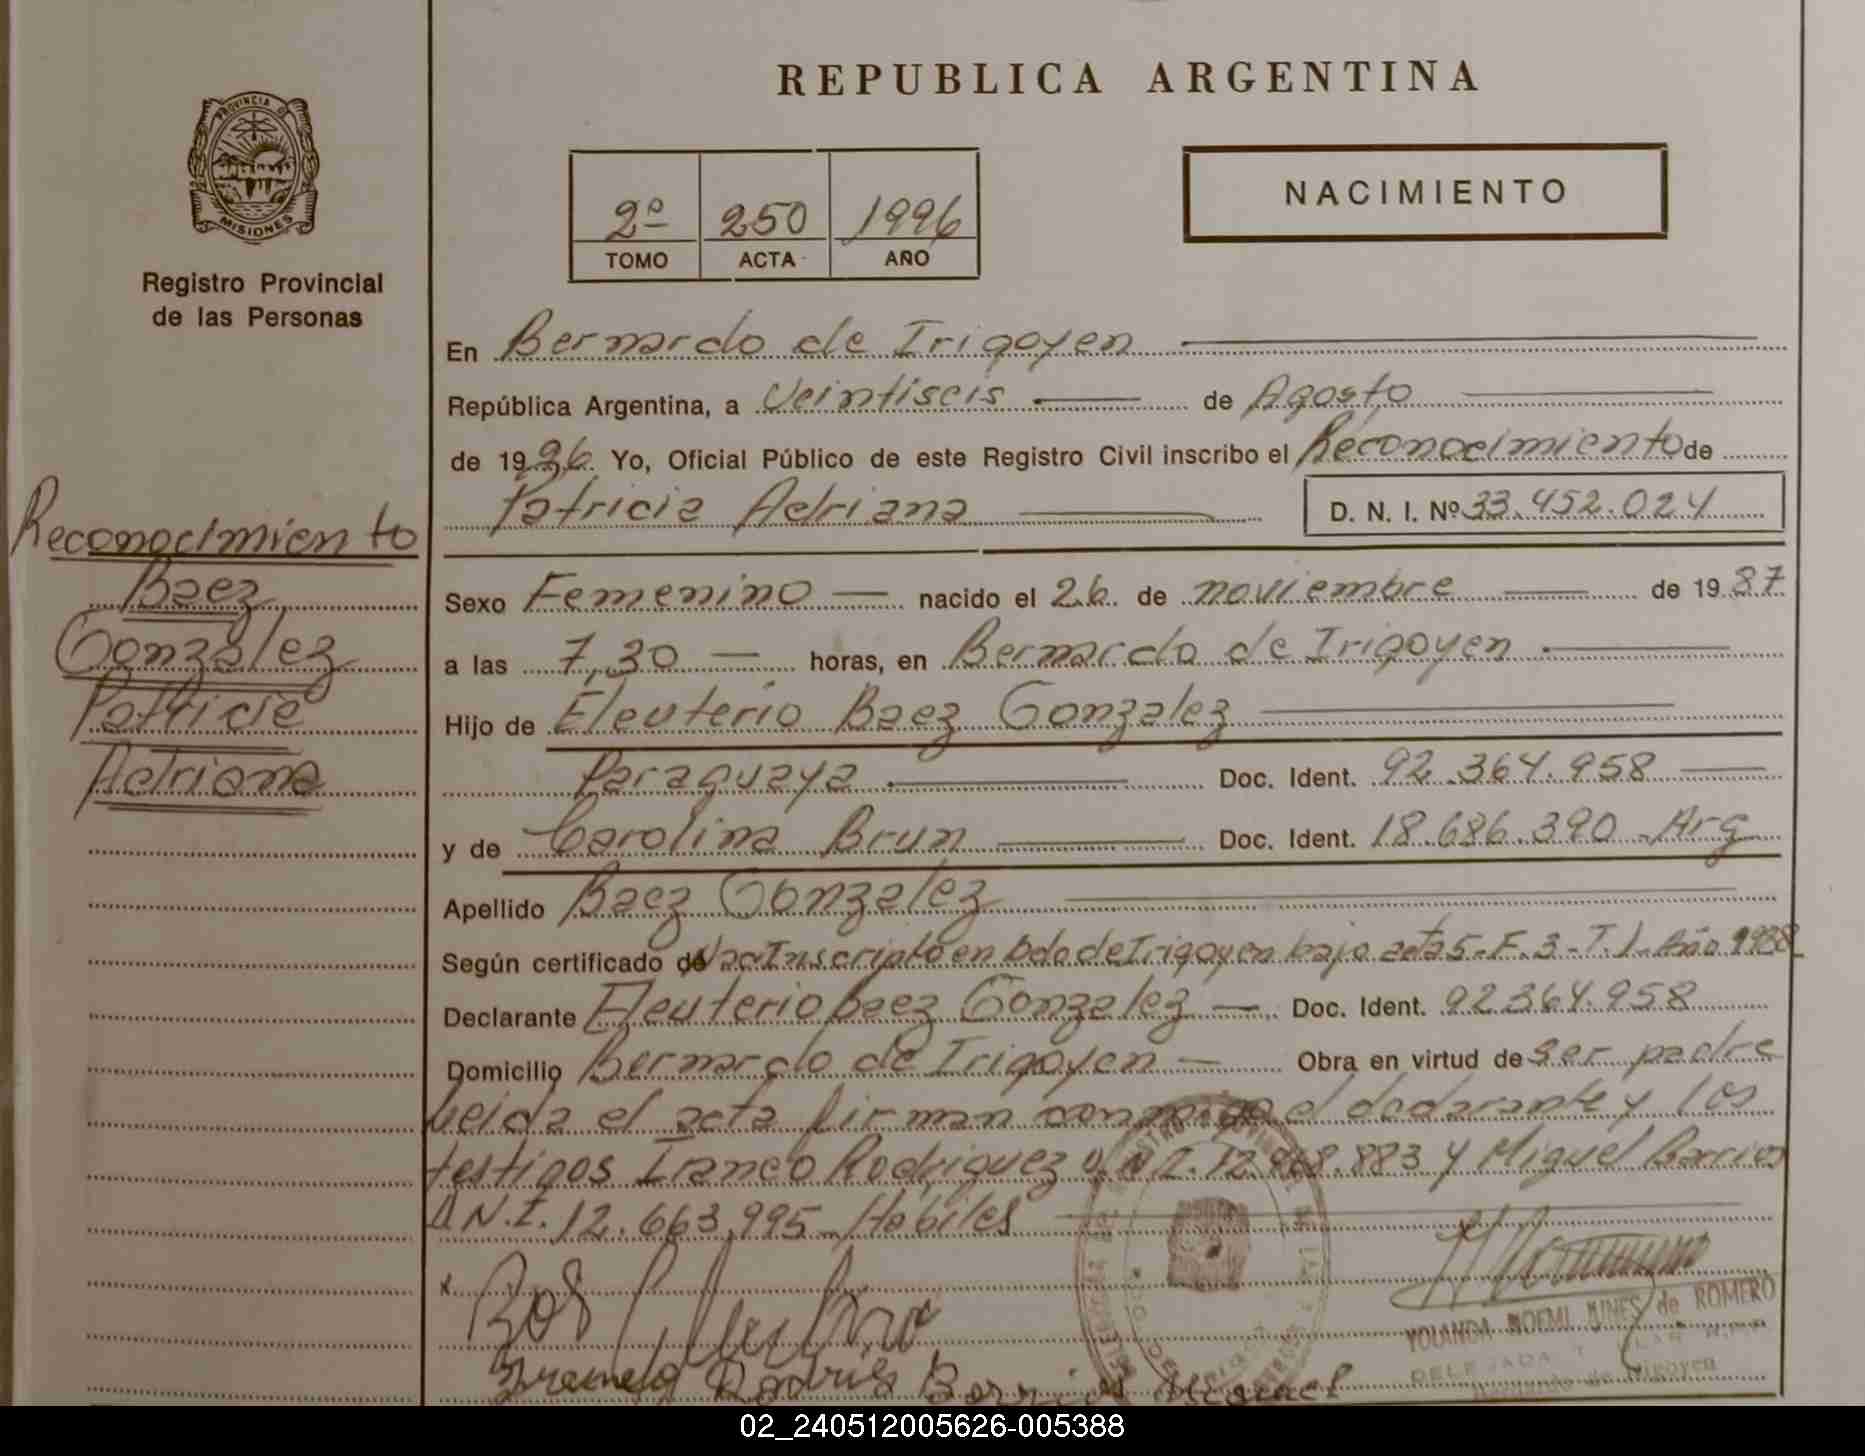 REPUBLICA ARGENTINA
PROVINCIA D
MISIONES
Registro Provincial
de las Personas
2º 250 1996
TOMO ACTA AÑO
NACIMIENTO
En Bernardo de Irigoyen
República Argentina, a Veintiseis de Agosto
de 1996. Yo, Oficial Público de este Registro Civil inscribo el Reconocimiento de
Patricia Adriana D. N. I. Nº 33.452.024
Reconocimiento
Baez
Gonzalez
Patricia
Adriana
Sexo Femenino nacido el 26 de noviembre de 1987
a las 7,30 horas, en Bernardo de Irigoyen
Hijo de Eleuterio Baez Gonzalez
Paraguaya Doc. Ident. 92.364.958
y de Carolina Brun Doc. Ident. 18.686.390 - Arg
Apellido Baez Gonzalez
Según certificado de Nac Inscripto en bdo de Irigoyen bajo acta 5-F.3-T.1-Año 1988
Declarante Eleuterio baez Gonzalez Doc. Ident. 92364.958
Domicilio Bernardo de Irigoyen Obra en virtud de ser padre
Leida el acta firman conmigo el declarante y los
testigos Rodriguez D.N.I. 12. .883 y Miguel Barrios
D.N.I. 12.663.995 - Habiles
YOLANDA NOEMI de ROMERO
DELEGADA TITULAR
Bernardo de Irigoyen
Barrios Miguel
02_240512005626-005388